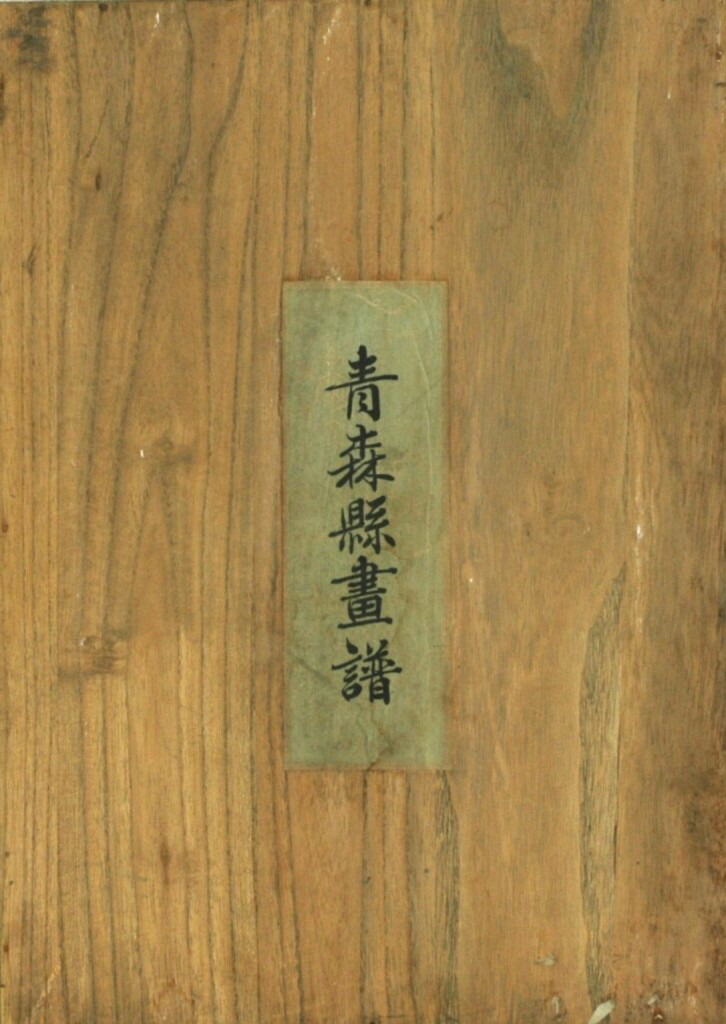 青森縣畫譜